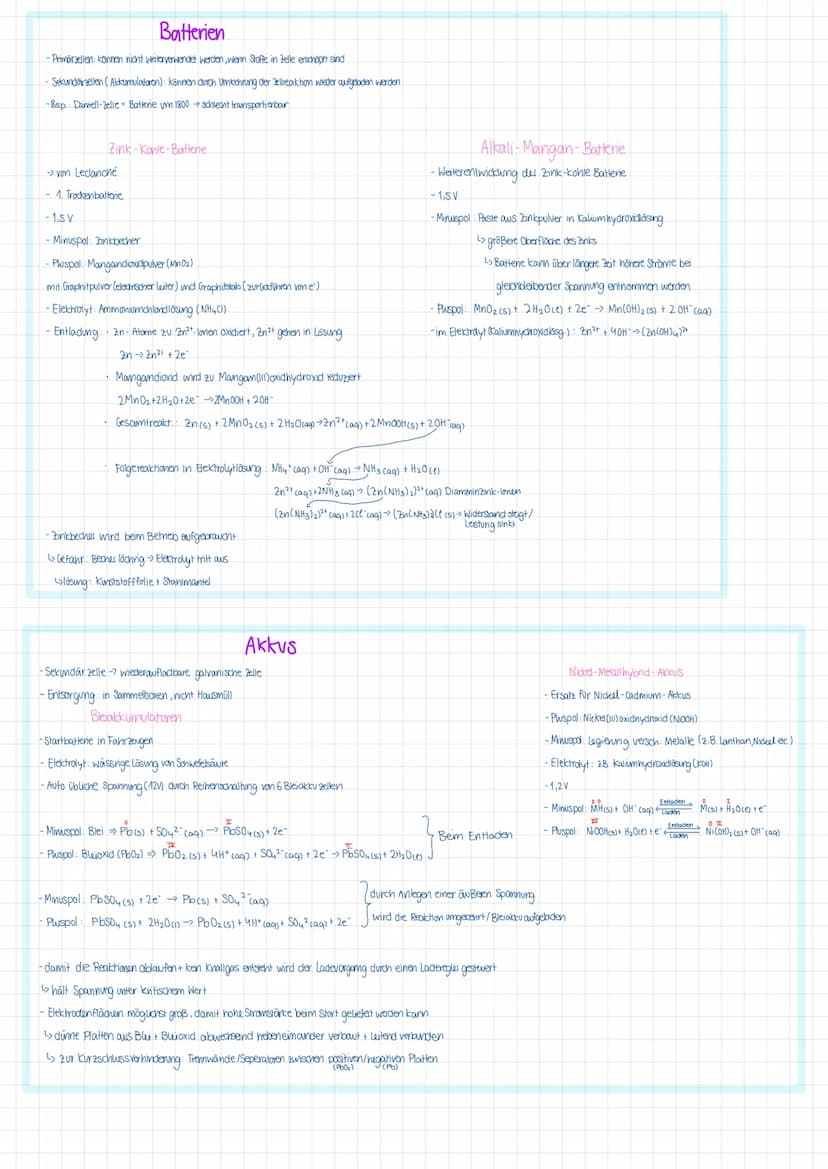 Batterien
- Primärzellen: können nicht weiterverwendet werden, wenn Stoffe in Zelle erschöpft sind
- Sekundärzellen (Akkumulatoren): können durch Umkehrung der Zellreaktion wieder aufgeladen werden
- Bsp.: Daniell-Zelle = Batterie um 1800 → schlecht transportierbar
Zink-Kohle-Batterie
→ von Leclanché
- 1. Trockenbatterie
- 1,5 V
- Minuspol: Zinkbecher
- Pluspol: Mangandioxidpulver (MnO₂)
mit Graphitpulver (elektrischer Leiter) und Graphitstab (zurückführen von e⁻)
- Elektrolyt: Ammoniumchloridlösung (NH₄Cl)
- Entladung: · Zn-Atome zu Zn²⁺-Ionen oxidiert, Zn²⁺ gehen in Lösung
Zn → Zn²⁺ + 2e⁻
· Mangandioxid wird zu Mangan(III)oxidhydroxid reduziert
2MnO₂+2H₂O+2e⁻ → 2MnOOH + 2OH⁻
· Gesamtreakt.: Zn(s) + 2MnO₂(s) + 2H₂O(aq) → Zn²⁺(aq) + 2MnOOH(s) + 2OH⁻(aq)
· Folgereaktionen in Elektrolytlösung: NH₄⁺(aq) + OH⁻(aq) → NH₃(aq) + H₂O(l)
Zn²⁺(aq)+2NH₃(aq) → (Zn(NH₃)₂)²⁺(aq) Diamminzink-Ionen
(Zn(NH₃)₂)²⁺(aq)+2Cl⁻(aq) → (Zn(NH₃)₂)Cl(s) → Widerstand steigt/
Leistung sinkt
- Zinkbecher wird beim Betrieb aufgebraucht
↳ Gefahr: Becher löchrig → Elektrolyt tritt aus
↳ Lösung: Kunststofffolie + Stahlmantel
Alkali-Mangan-Batterie
- Weiterentwicklung der Zink-Kohle Batterie
- 1,5 V
- Minuspol: Paste aus Zinkpulver in Kaliumhydroxidlösung
↳ größere Oberfläche des Zinks
↳ Batterie kann über längere Zeit höhere Ströme bei
gleichbleibender Spannung entnommen werden
- Pluspol: MnO₂(s) + 2H₂O(l) + 2e⁻ → Mn(OH)₂(s) + 2OH⁻(aq)
- im Elektrolyt (Kaliumhydroxidlösg.): Zn²⁺ + 4OH⁻ → (Zn(OH)₄)²⁺
Akkus
- Sekundärzelle → wiederaufladbare galvanische Zelle
- Entsorgung: in Sammelboxen, nicht Hausmüll
Bleiakkumulatoren
- Startbatterie in Fahrzeugen
- Elektrolyt: wässrige Lösung von Schwefelsäure
- Auto übliche Spannung (12V) durch Reihenschaltung von 6 Bleiakkuzellen
0 II
- Minuspol: Blei ⇒ Pb(s) + SO₄²⁻(aq) → PbSO₄(s) + 2e⁻
IV II
- Pluspol: Bleioxid (PbO₂) ⇒ PbO₂(s) + 4H⁺(aq) + SO₄²⁻(aq) + 2e⁻ → PbSO₄(s) + 2H₂O(l)
Beim Entladen
- Minuspol: PbSO₄(s) + 2e⁻ → Pb(s) + SO₄²⁻(aq)
- Pluspol: PbSO₄(s) + 2H₂O(l) → PbO₂(s) + 4H⁺(aq) + SO₄²⁻(aq) + 2e⁻
durch Anlegen einer äußeren Spannung
wird die Reaktion umgekehrt/Bleiakku aufgeladen
- damit die Reaktionen ablaufen + kein Knallgas entsteht wird der Ladevorgang durch einen Laderegler gesteuert
↳ hält Spannung unter kritischem Wert
- Elektrodenflächen möglichst groß, damit hohe Stromstärke beim Start geliefert werden kann
↳ dünne Platten aus Blei + Bleioxid abwechselnd nebeneinander verbaut + leitend verbunden
↳ zur Kurzschlussverhinderung: Trennwände/Seperatoren zwischen positiven/negativen Platten
(PbO₂) (Pb)
Nickel-Metallhybrid-Akkus
- Ersatz für Nickel-Cadmium-Akkus
- Pluspol: Nickel(III)oxidhydroxid (NiOOH)
- Minuspol: Legierung versch. Metalle (z.B. Lanthan, Nickel etc.)
- Elektrolyt: z.B. Kaliumhydroxidlösung (KOH)
- 1,2V
0 0 Entladen 0 I
- Minuspol: MH(s) + OH⁻(aq) ⇄ M(s) + H₂O(l) + e⁻
Laden
III Entladen 0 II
- Pluspol: NiOOH(s) + H₂O(l) + e⁻ ⇄ Ni(OH)₂(s) + OH⁻(aq)
Laden